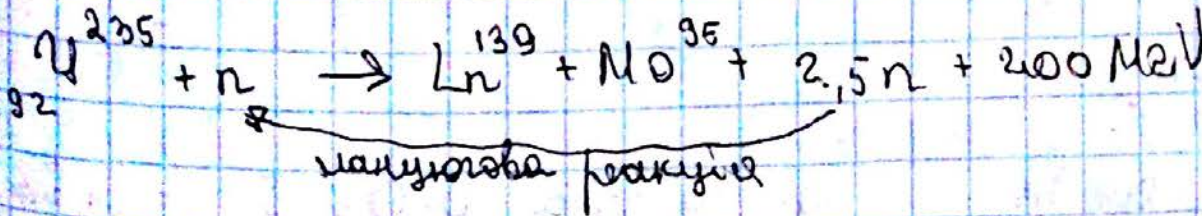 ₉₂U²³⁵ + n → Ln¹³⁹ + Mo⁹⁵ + 2,5n + 200 MeV
ланцюгова реакція